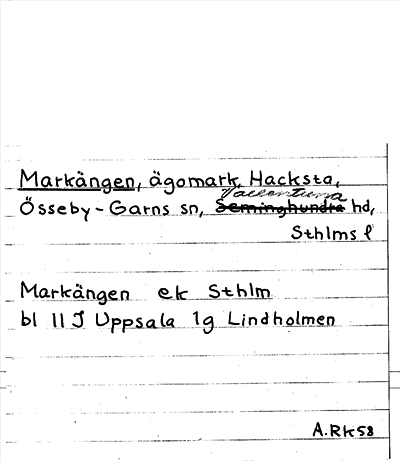 Markängen, ägomark, Hacksta,
Össeby-Garns sn, Vallentuna Seminghundra hd,
Sthlms l
Markängen ek Sthlm
bl 11 J Uppsala 1g Lindholmen
A.RK58